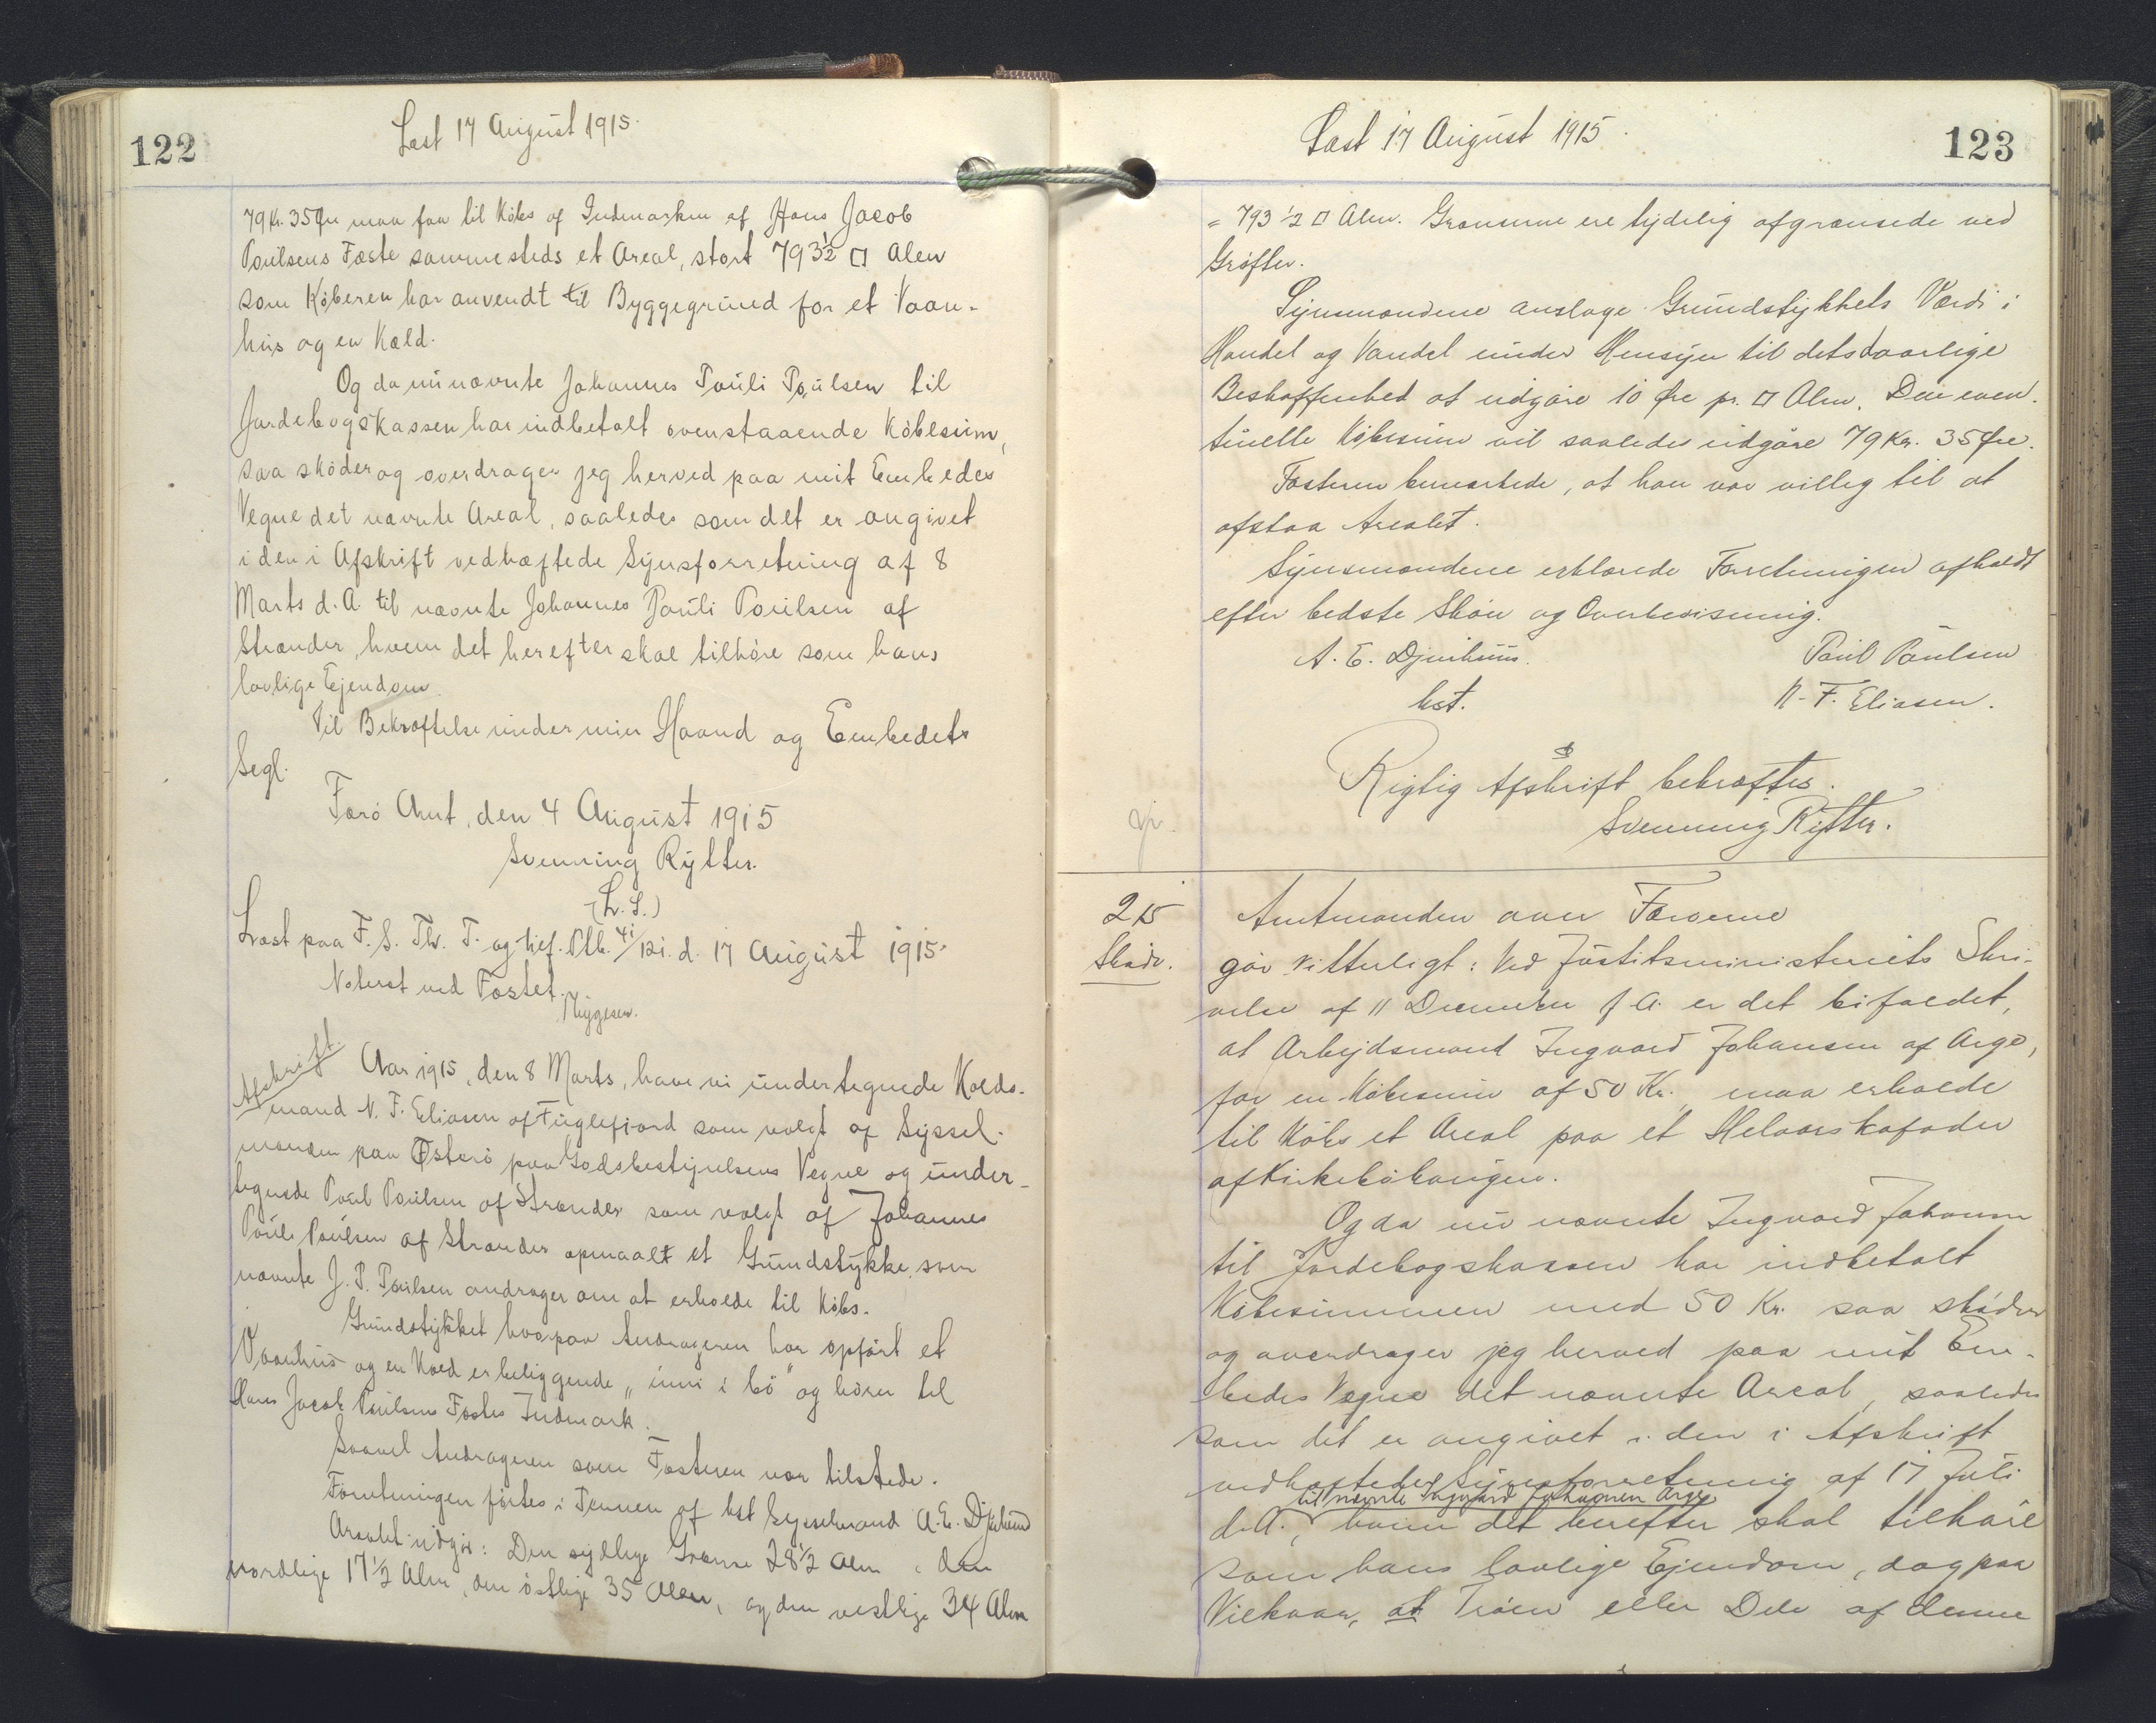 122
Læst 17 August 1915.
79 Kr. 35 Øre maa faa til Købs af Indmarken af Hans Jacob
Poulsens Fæste sammesteds et Areal, stort 793½ □ Alen
som Køberen har anvendt til Byggegrund for et Vaan-
hus og en Kæld.
Og da nu nævnte Johannes Pauli Poulsen til
Jordebogskassen har indbetalt ovenstaaende Købesum,
saa skøder og overdrager jeg herved paa mit Embedes
Vegne det nævnte Areal, saaledes som det er angivet
i den i Afskrift vedhæftede Synsforretning af 8
Marts d. A. til nævnte Johannes Pauli Poulsen af
Strænder, hvem det herefter skal tilhøre som hans
lovlige Ejendom.
Til Bekræftelse under min Haand og Embedets
Segl.
Færø Amt, den 4 August 1915
Svenning Rytter.
(L. S.)
Læst paa F. S. Th. T. og d. 17 August 1915.
Noteret ved Fæstet.
Afskrift.
Aar 1915, den 8 Marts, have vi undertegnede Kolds-
mand N. F. Eliasen af Fuglefjord som valgt af Syssel-
manden paa Østerø paa Godsbestyrelsens Vegne og under-
tegnede Poul Poulsen af Strænder som valgt af Johannes
Pauli Poulsen af Strænder opmaalt et Grundstykke, som
nævnte J. P. Poulsen andrager om at erholde til Købs.
Grundstykket hvorpaa Andrageren har opført et
Vaanhus og en Kæld er beliggende „inni i bø" og hører til
Hans Jacob Poulsens Fæstes Indmark.
Saavel Andrageren som Fæsteren var tilstede.
Forretningen førtes i Pennen af kst Sysselmand A. E. Djurhuus
Arealet udgør: Den sydlige Grænse 28½ Alen, den
nordlige 17½ Alen, den østlige 35 Alen, og den vestlige 34 Alen
Læst 17 August 1915.
123
= 793 ½ □ Alen. Grænserne ere tydelig afgrænsede ved
Grøfter.
Synsmændene ansloge Grundstykkets Værdi i
Handel og Vandel under Hensyn til dets daarlige
Beskaffenhed at udgøre 10 Øre pr. □ Alen. Den even-
tuelle Købesum vil saaledes udgøre 79 Kr. 35 Øre.
Fæsteren bemærkede, at han var villig til at
afstaa Arealet.
Synsmændene erklærede Forretningen afholdt
efter bedste Skøn og Overbevisning.
A. E. Djurhuus. Poul Poulsen
kst. N. F. Eliasen.
Rigtig Afskrift bekræftes.
Svenning Rytter.
215 Amtmanden over Færøerne
Skøde. gør vitterligt: Ved Justitsministeriets Skri-
velse af 11 December f. A. er det bifaldet,
at Arbejdsmand Ingvard Johansen af Arge,
for en Købesum af 50 Kr. maa erholde
til Købs et Areal paa et Helaarskofoder
af Kirkebøhaugen.
Og da nu nævnte Ingvard Johansen
til Jordebogskassen har indbetalt
Købesummen med 50 Kr. saa skøder
og overdrager jeg herved paa mit Em-
bedes Vegne det nævnte Areal, saaledes
som det er angivet i den i Afskrift
vedhæftede Synsforretning af 17 Juli
til nævnte Ingvard Johansen Arge
d. A., hvem det herefter skal tilhøre
som hans lovlige Ejendom, dog paa
Vilkaar, at Trøen eller Dele af denne